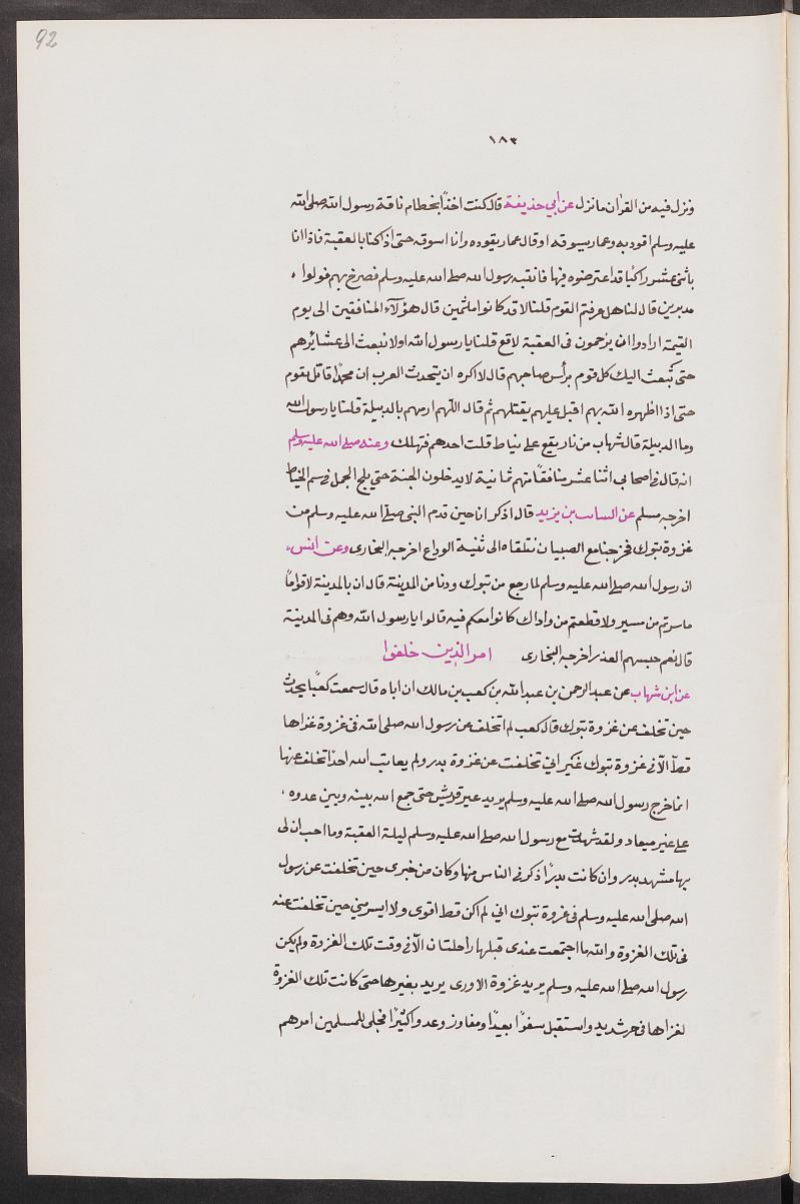 92
١٨٣
ونزل فيه من القرٰان ما نزل عن ابي حذيفة قال كنت اخذًا بخطام ناقة رسول الله صلى الله
عليه وسلم اقود به وعمار يسوقه او قال عمار يقوده وانا اسوقه حتى اذا كنا بالعقبة فاذا انا
باثنى عشر راكبًا قد اعترضوه فيها فانتبه رسول الله صلى الله عليه وسلم فصرخ بهم فولوا
مدبرين قال لنا هل عرفتم القوم قلنا لا قد كانوا ملثمين قال هؤلآء المنافقين الى يوم
القيمة ارادوا ان يزحمون فى العقبة لاقع قلنا يا رسول الله اولا نبعث الى عشائرهم
حتى تُبعث اليك كل قوم برأس صاحبهم قال لا اكره ان يتحدث العرب ان محمدًا قاتل بقوم
حتى اذا اظهره الله بهم اقبل عليهم يقتلهم ثم قال اللّهم ارمهم بالدبيلة قلنا يا رسول الله
وما الدبيلة قال شهاب من نار يقع على نياط قلت احدهم فتهلك وعنه صلى الله عليه وسلم
انه قال فى اصحابى اثنا عشر منافقًا منهم ثمانية لا يدخلون الجنة حتي يلج الجمل فى سم الخياط
اخرجه مسلم عن الساىب بن يزيد قال اذكر انا حين قدم النبى صلى الله عليه وسلم من
غزوة تبوك فخرجنا مع الصبيان نتلقاه الى ثنية الوداع اخرجه البخارى وعن انس
ان رسول الله صلى الله عليه وسلم لما رجع من تبوك ودنا من المدينة قال ان بالمدينة لاقوامًا
ما سرتم من مسير ولا قطعتم من واد الا كانوا معكم فيه قالوا يا رسول الله وهم فى المدينة
قال نعم حبسهم العذر اخرجه البخارى امر الذين خلفوا
عن ابن شهاب عن عبد الرحمن بن عبد الله بن كعب بن مالك ان اباه قال سمعت كعبًا يحدث
حين تخلف عن غزوة تبوك قال كعب لم اتخلف عن رسول الله صلى الله فى غزوة غزاها
قط الّا فى غزوة تبوك غير اني تخلفت عن غزوة بدر ولم يعاتب الله احدًا تخلف عنها
انما خرج رسول الله صلى الله عليه وسلم يريد عير قريش حتى جمع الله بينه وبين عدوه
على غير ميعاد ولقد شهدت مع رسول الله صلى الله عليه وسلم ليلة العقبة وما احب ان لى
بها مشهد بدر وان كانت بدرًا اذكر فى الناس منها وكان من خبرى حين تخلفت عن رسول
الله صلى الله عليه وسلم فى غزوة تبوك اني لم اكن قط اقوى ولا ايسر مني حين تخلفت عنه
فى تلك الغزوة والله ما اجتمعت عندى قبلها راحلتان الّا فى وقت تلك الغزوة ولم يكن
رسول الله صلى الله عليه وسلم يريد غزوة الا ورى يريد بغيرها حتى كانت تلك الغزوة
لغزاها فى حر شديد واستقبل سفرًا بعيدًا ومفاوز وعدوا كثيرًا فجلى للمسلمين امرهم